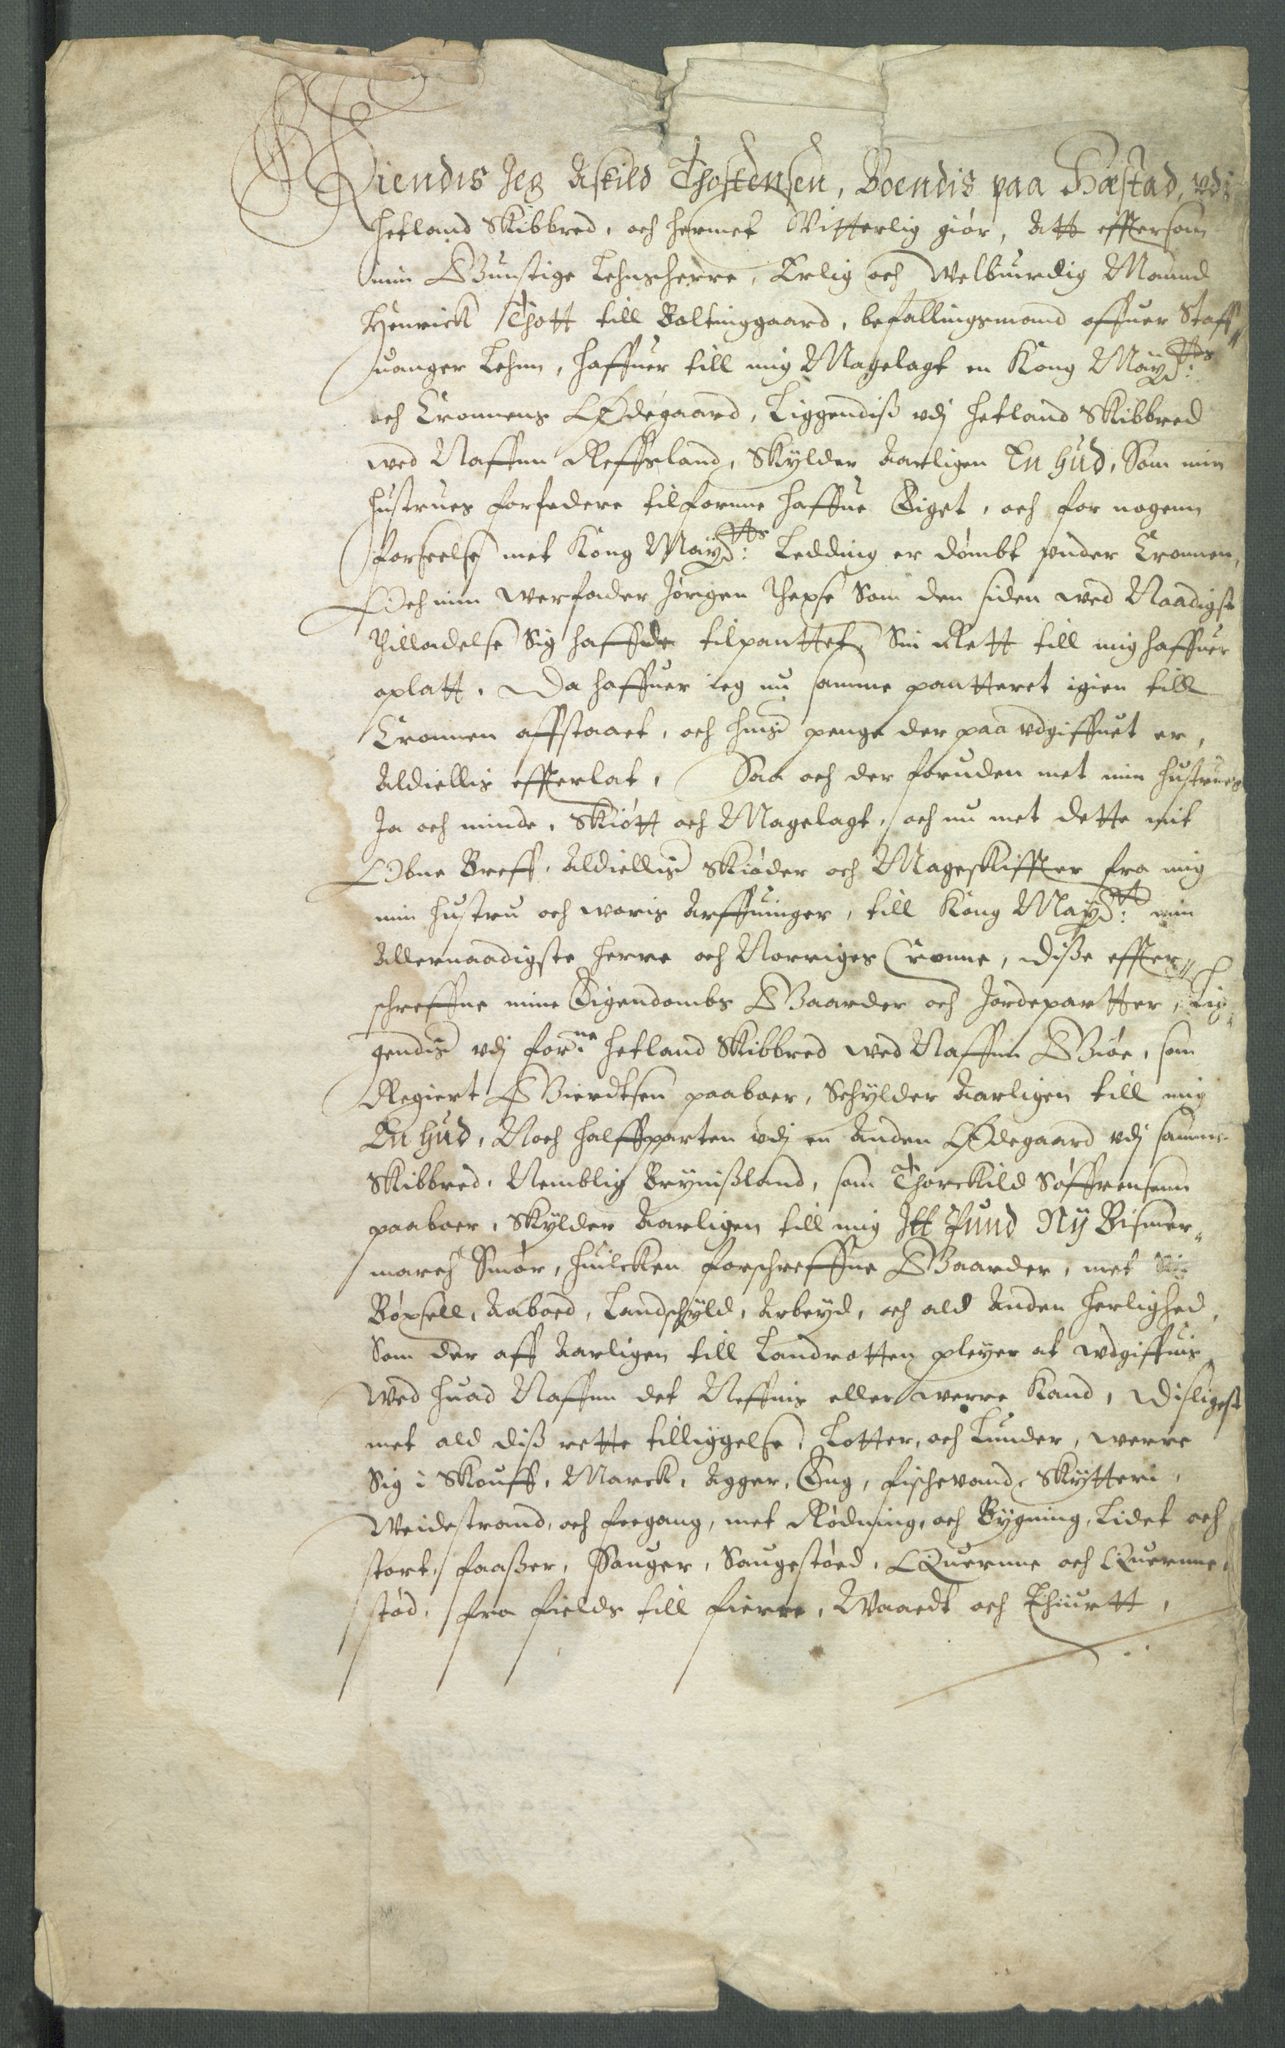 Kiendis Jeg Askild Thostensen, Boendis paa Hæstad, vdi
Hetland Skibbred, och hermet Witterlig giør, Att effttersom
min Gunstige Lehnsherre, Erlig och Welbuurdig Maand
Henrich Thott till Boltinggaard, befallingsmand offuer Staff„
uanger Lehnn, haffuer till mig Magelagt en Kong Maÿtts:
och Cronnens Ødegaard, Liggendiß vdj Hetland Skibbred
wed Naffnn Reffsland, Skÿlder Aarligen En hud, Som min
hustrues forfædere tilfornne haffue Eiget, och for nogenn
forseelse met Kong Maÿtts: Ledding er dømbt vnder Cronnen,
Och min Werfader Jørigen Thexse Som den siden wed Naadigst
Thilladelse Sig haffde tilpanttet, Sin Rett till mig haffuer
oplatt. Da haffuer ieg nu samme pantteret igien till
Cronnen affstaaet, och huis penge der paa vdgiffuet er,
Aldielis effterlat, Saa och der foruden met min hustrues
Ja och minde, Skiøtt och Magelagt, och nu met dette mit
Obne Breff, Aldielis Skiøder och Mageskiffter fra mig
min hustru och woris Arffuinger, till Kong Maÿtt: min
Allernaadigste Herre och Norriges Cronne, Disse effter„
schreffne mine Eigendombs Gaarder och Jordepartter, Lig„
gendis vdj forne: Hetland Skibbred wed Naffnn Giøe, som
Regiert Gierdtsen paaboer, Schÿlder Aarligen till mig
En hud, Noch halffparten vdj en Anden Ødegaard vdj samme
Skibbred, Nemblig Brÿnißland, som Thorckild Søffrensenn
paaboer, Skÿlder Aarligen till mig Itt Pund Nÿ Bismer„
march Smør, huilcken forschreffne Gaarder, met
Bøxsell, Aaboed, Landschÿld, Arbeÿd, och ald Anden herlighed,
Som der aff Aarligen till Landrotten pleÿer at wdgiffuis,
Wed huad Naffnn det Neffnis eller werre kand, Disligest
met ald diß rette tilliggelse, Lotter, och Lunder, werre
Sig i Skouff, Marck, Agger, Eng, fischevand, Skÿtteri,
Weidestrand, och feegang, met Rødning, och Bÿgning, Lidet och
stort, faaßer, Sauger, Saugestøed, Quernne och Quernne„
stød, fra fields till fierre, Waaedt och Thiurtt,